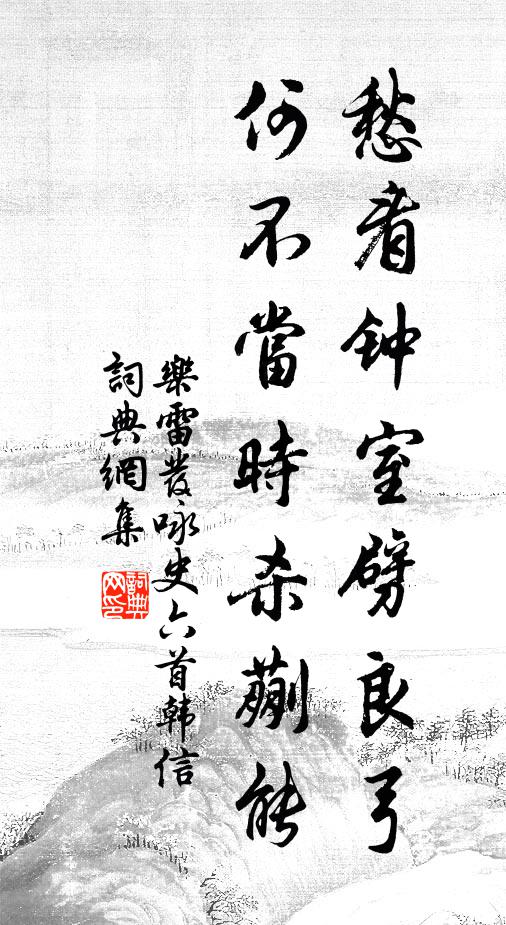 愁看钟室劈良弓
何不當時杀蒯能
樂雷發咏史六首韩信
詞典網集
詞典網印